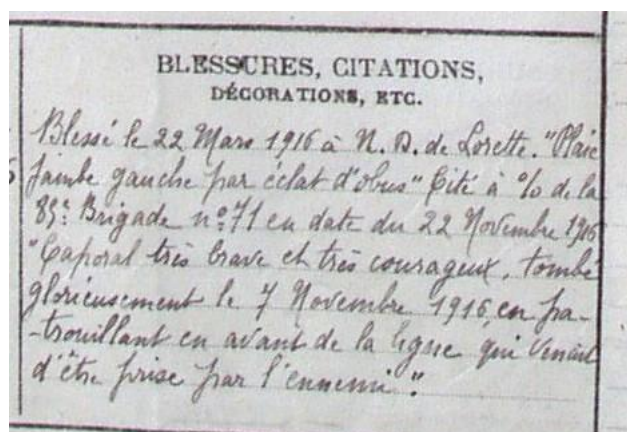 BLESSURES, CITATIONS,
DÉCORATIONS, ETC.
Blessé le 22 Mars 1916 à N. D. de Lorette. "Plaie
jambe gauche par éclat d'obus" Cité à %o de la
85e Brigade no 71 en date du 22 Novembre 1916
"Caporal très brave et très courageux, tombé
glorieusement le 7 Novembre 1916, en pa-
-trouillant en avant de la ligne qui venait
d'être prise par l'ennemi".